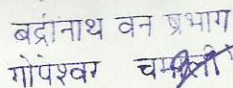 बद्रीनाथ वन प्रभाग
गोपेश्वर चमोली